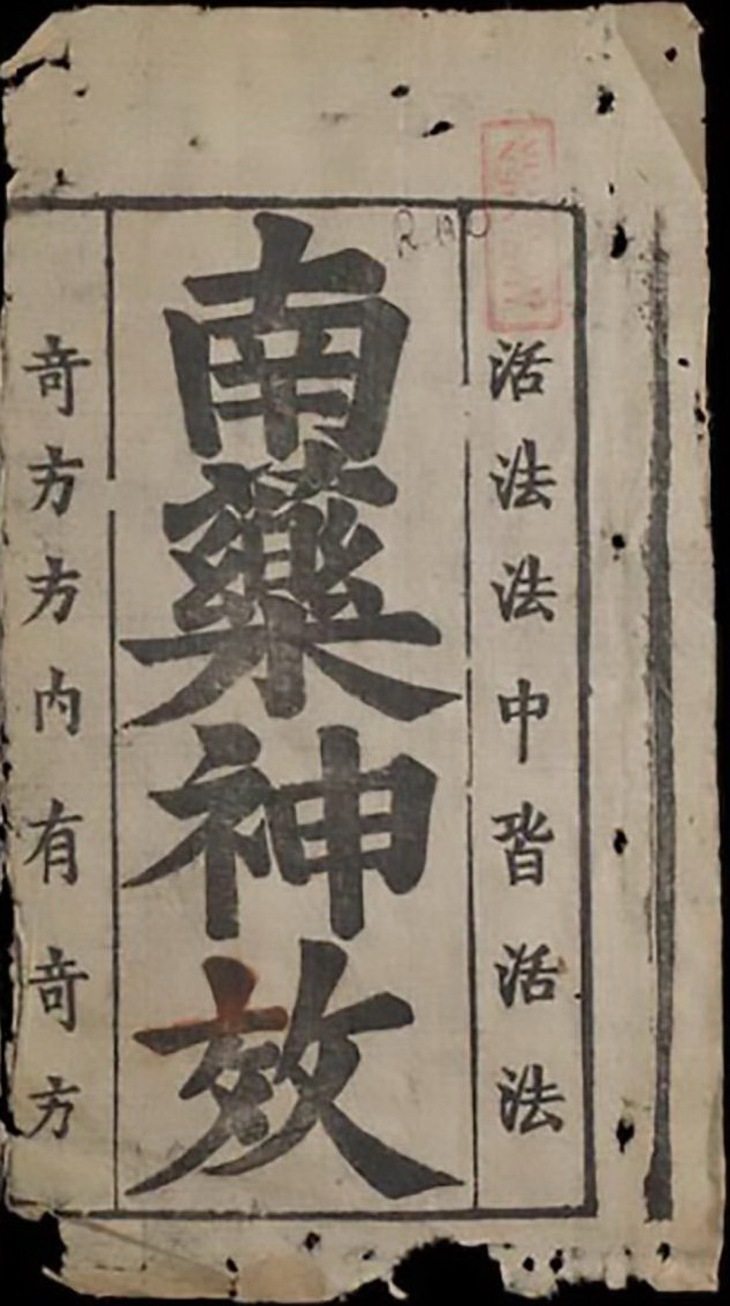 活法法中皆活法
南藥神效
奇方方内有奇方
R.